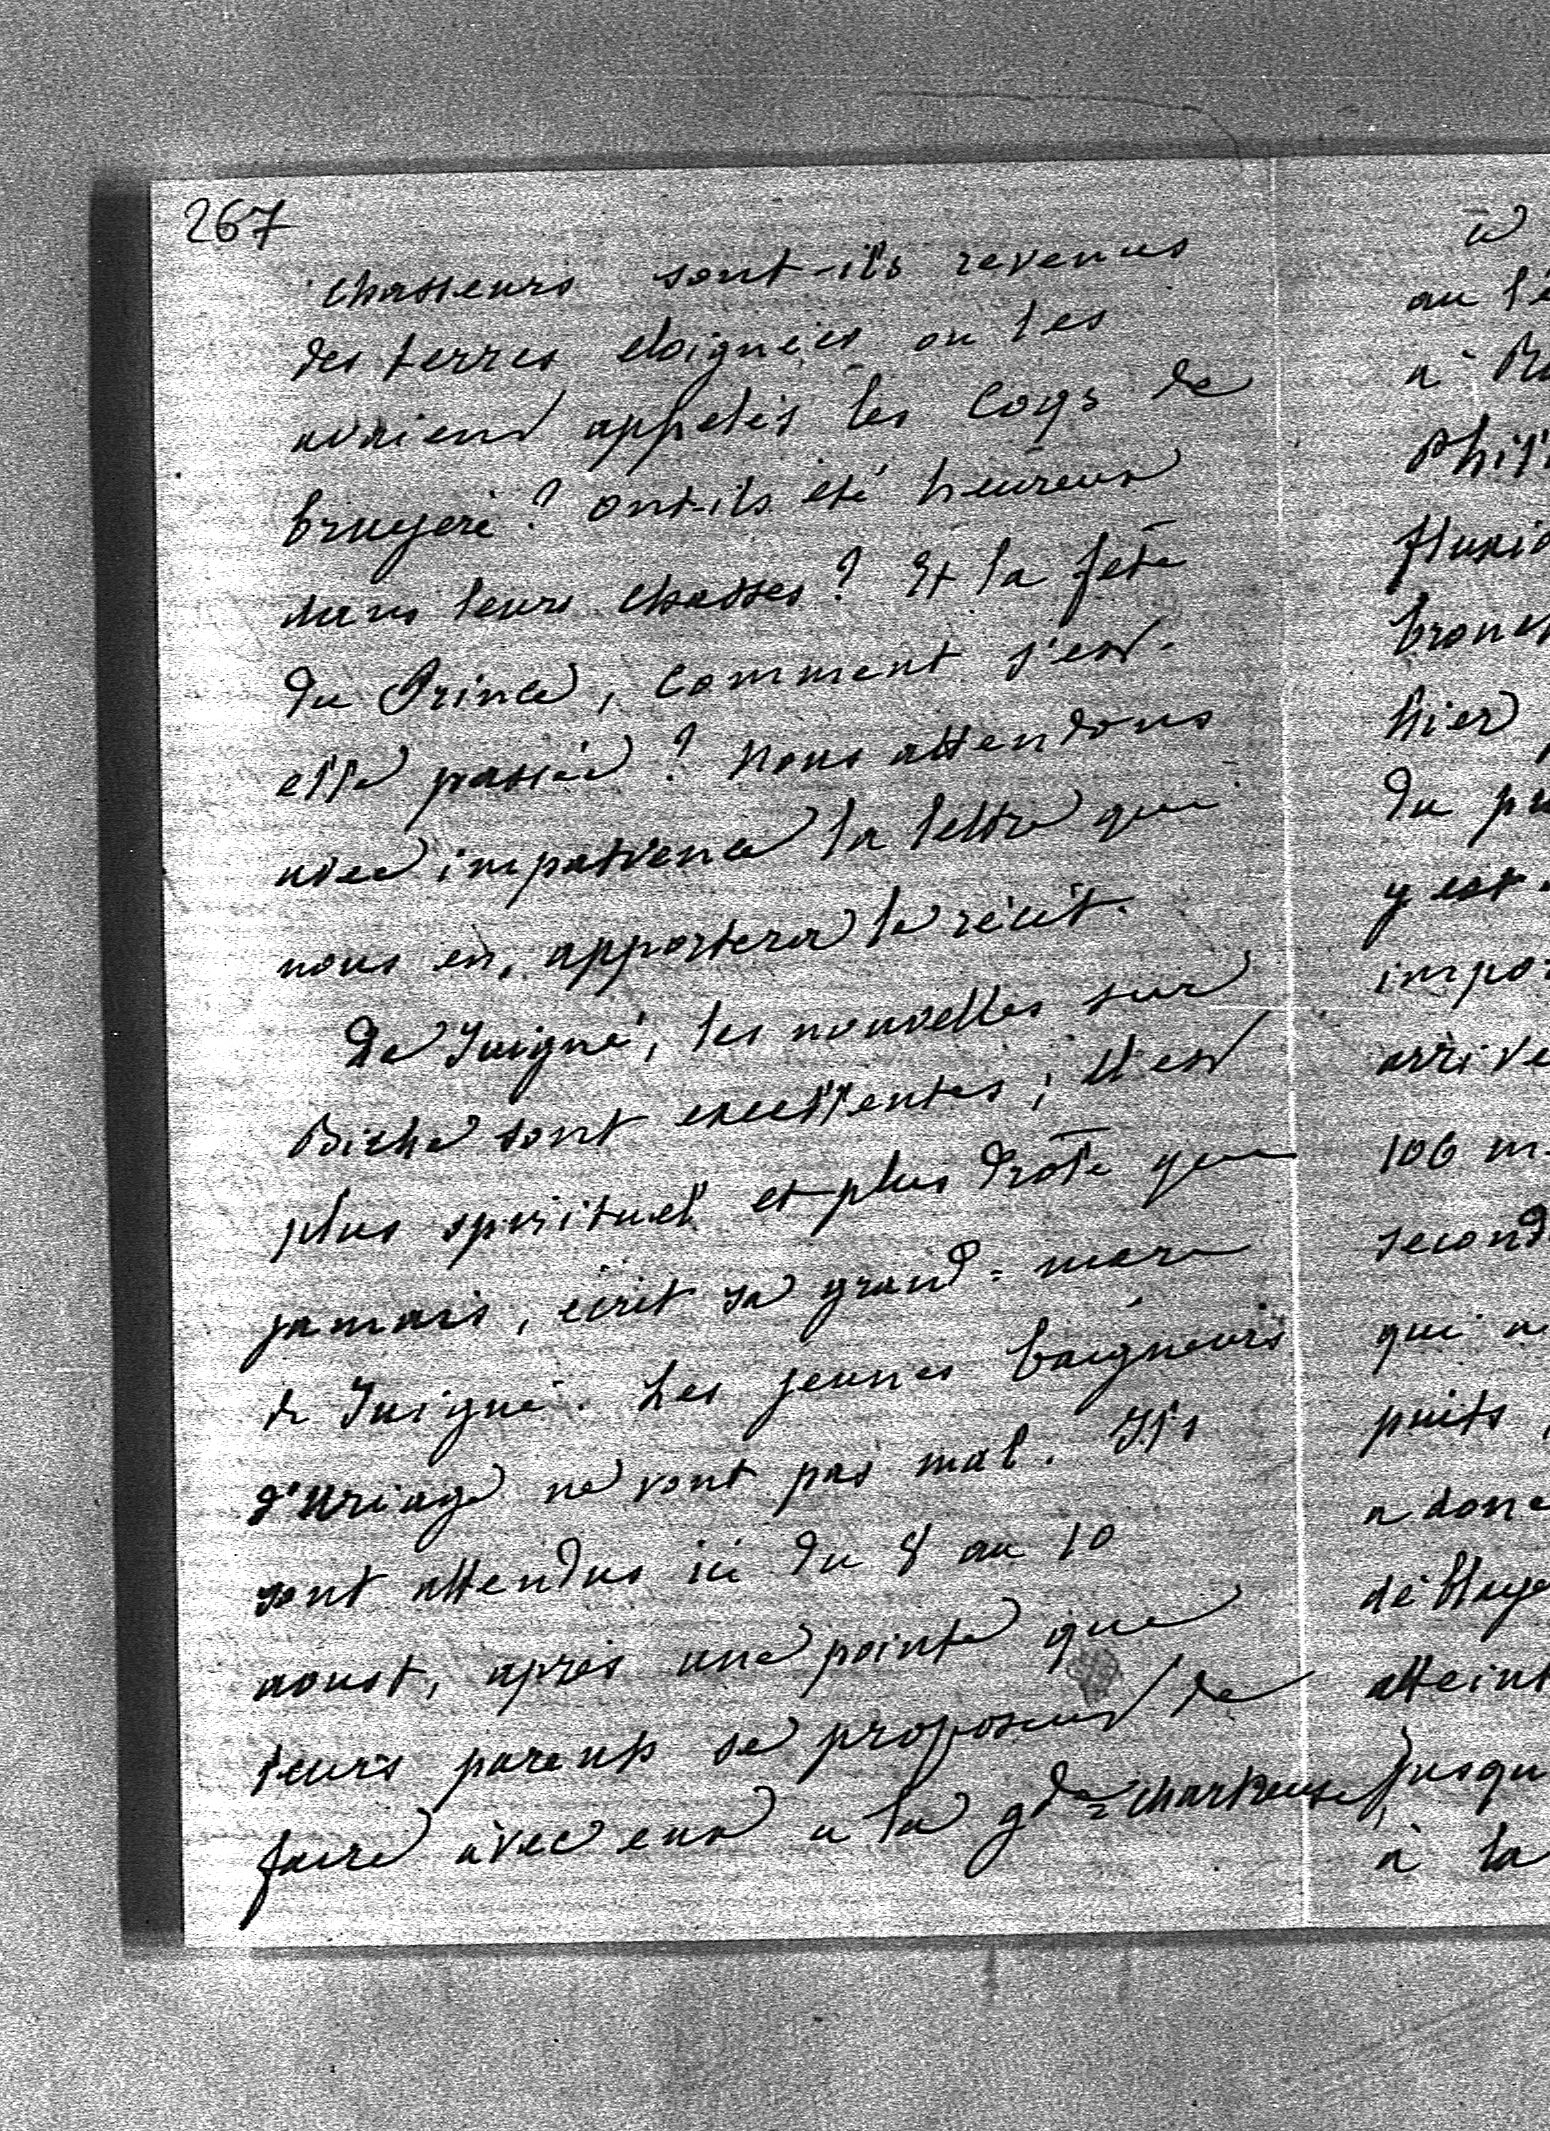 267
chasseurs sont-ils revenus
des terres eloignées ou les
avaient appelés les coqs de
bruyere ? Ont-ils été heureux
dans leurs chasses ? Et la fête
du Prince, comment s'est-
elle passée ? Nous attendons
avec impatience la lettre qui
nous en apportera le récit.
De Juigné, les nouvelles sur
Biche sont excellentes ; Il est
plus spirituel et plus drôle que
jamais, écrit sa grand-mère
de Juigné. Les jeunes baigneurs
d'Uriage ne vont pas mal. Ils
sont attendus ici du 8 au 10
aoust, après une pointe que
leurs parents se proposent de
faire avec eux a la gde chartreuse
au l'é
a Ro
Phil
fluxio
bronch
hier
du pu
y est
impor
arrive
106 m
second
qui a
puits
a donc
déblaye
atteint
jusqu
à la